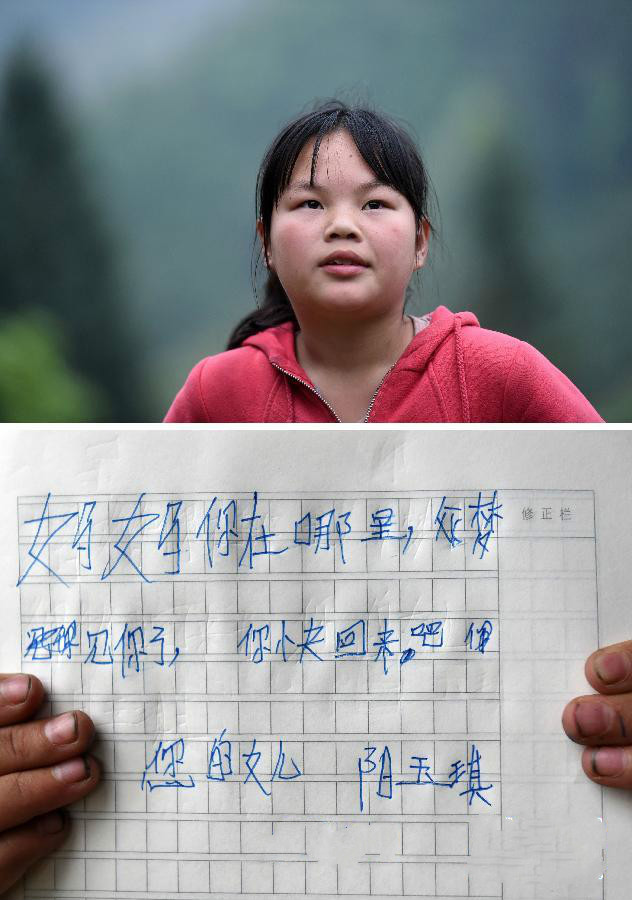 妈妈你在哪里，梦
修正栏
见你了，你快回来吧
您的女儿 阳玉琪